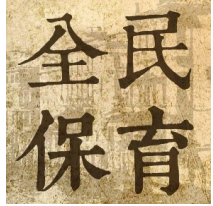 全民
保育